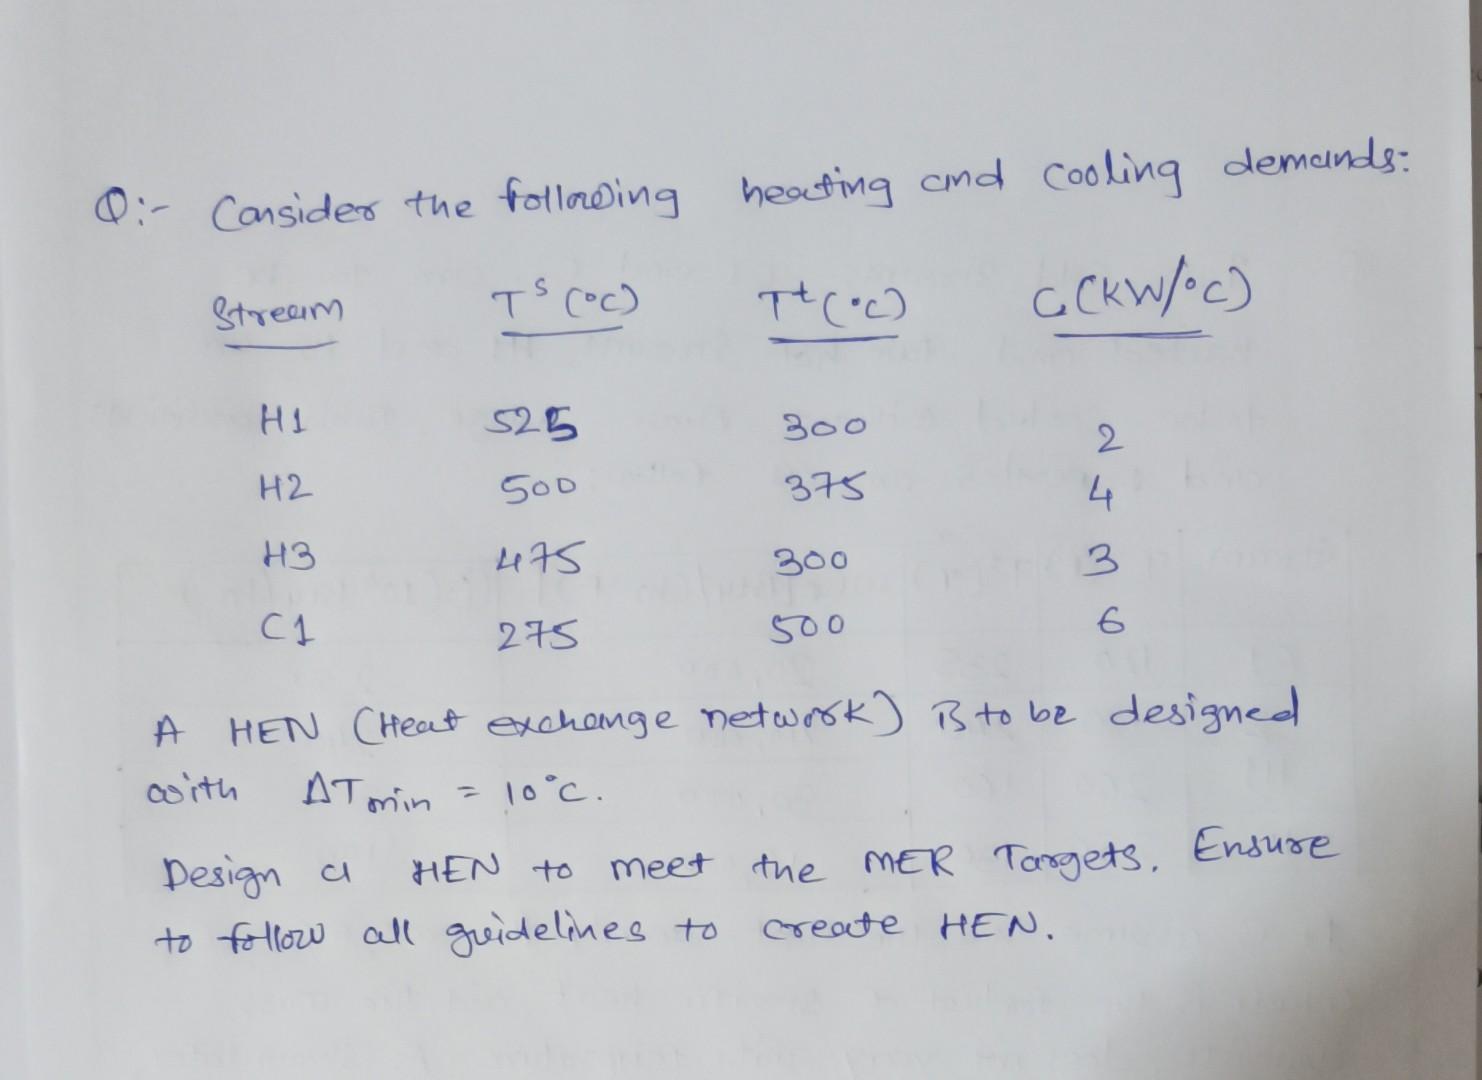 Q:- Consider the following heating and cooling demands:
Stream Tˢ (°C) Tᵗ (°C) C (kW/°C)
H1 525 300 2
H2 500 375 4
H3 475 300 3
C1 275 500 6
A HEN (Heat exchange network) is to be designed
with ΔTmin = 10°C.
Design a HEN to meet the MER Targets. Ensure
to follow all guidelines to create HEN.